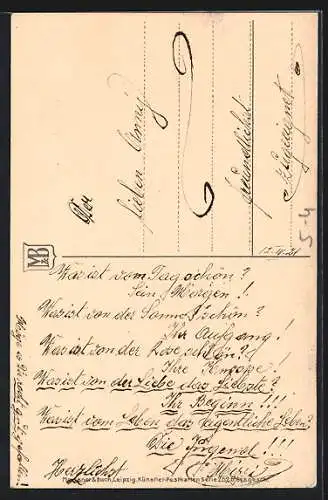 Der
lieben Anny
freundlichst
zugeeignet.
5-4
12.IV.21
M&B
Was ist vom Tag schön?
Sein Morgen!!
Was ist von der Sonne schön?
Ihr Aufgang!
Was ist von der Rose schön?
Ihre Knospe!
Was ist von der Liebe das Liebste?
Ihr Beginn!!!
Was ist vom Leben das eigentliche Leben?
Die Jugend!!!
Herzlichst
Meissner & Buch, Leipzig. Künstler-Postkarten Serie